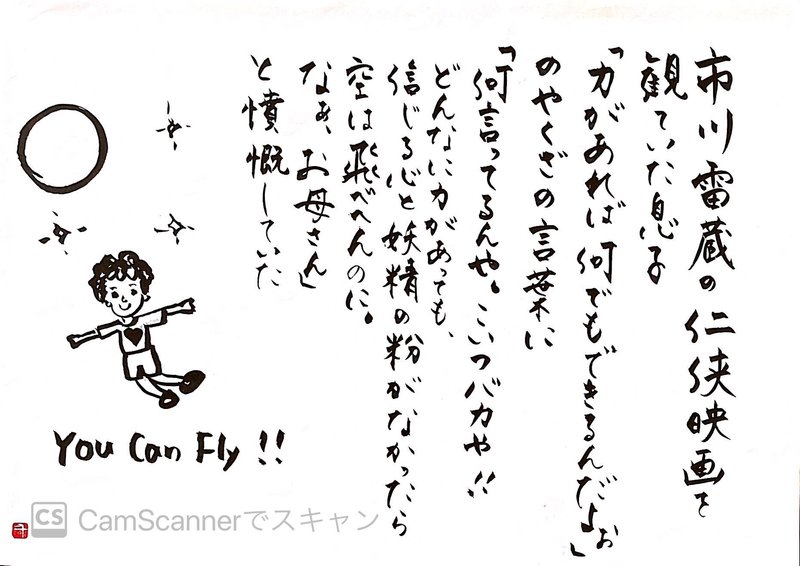 市川雷蔵の仁侠映画を
観ていた息子
「力があれば何でもできるんだよぉ」
のやくざの言葉に
「何言ってるんや。こいつバカや!!
どんなに力があっても、
信じる心と妖精の粉がなかったら
空は飛べへんのに。
なぁ、お母さん」
と憤慨していた
You Can Fly !!
CS CamScannerでスキャン